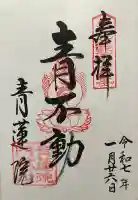 奉拝
青不動
青蓮院
令和七年
一月廿六日